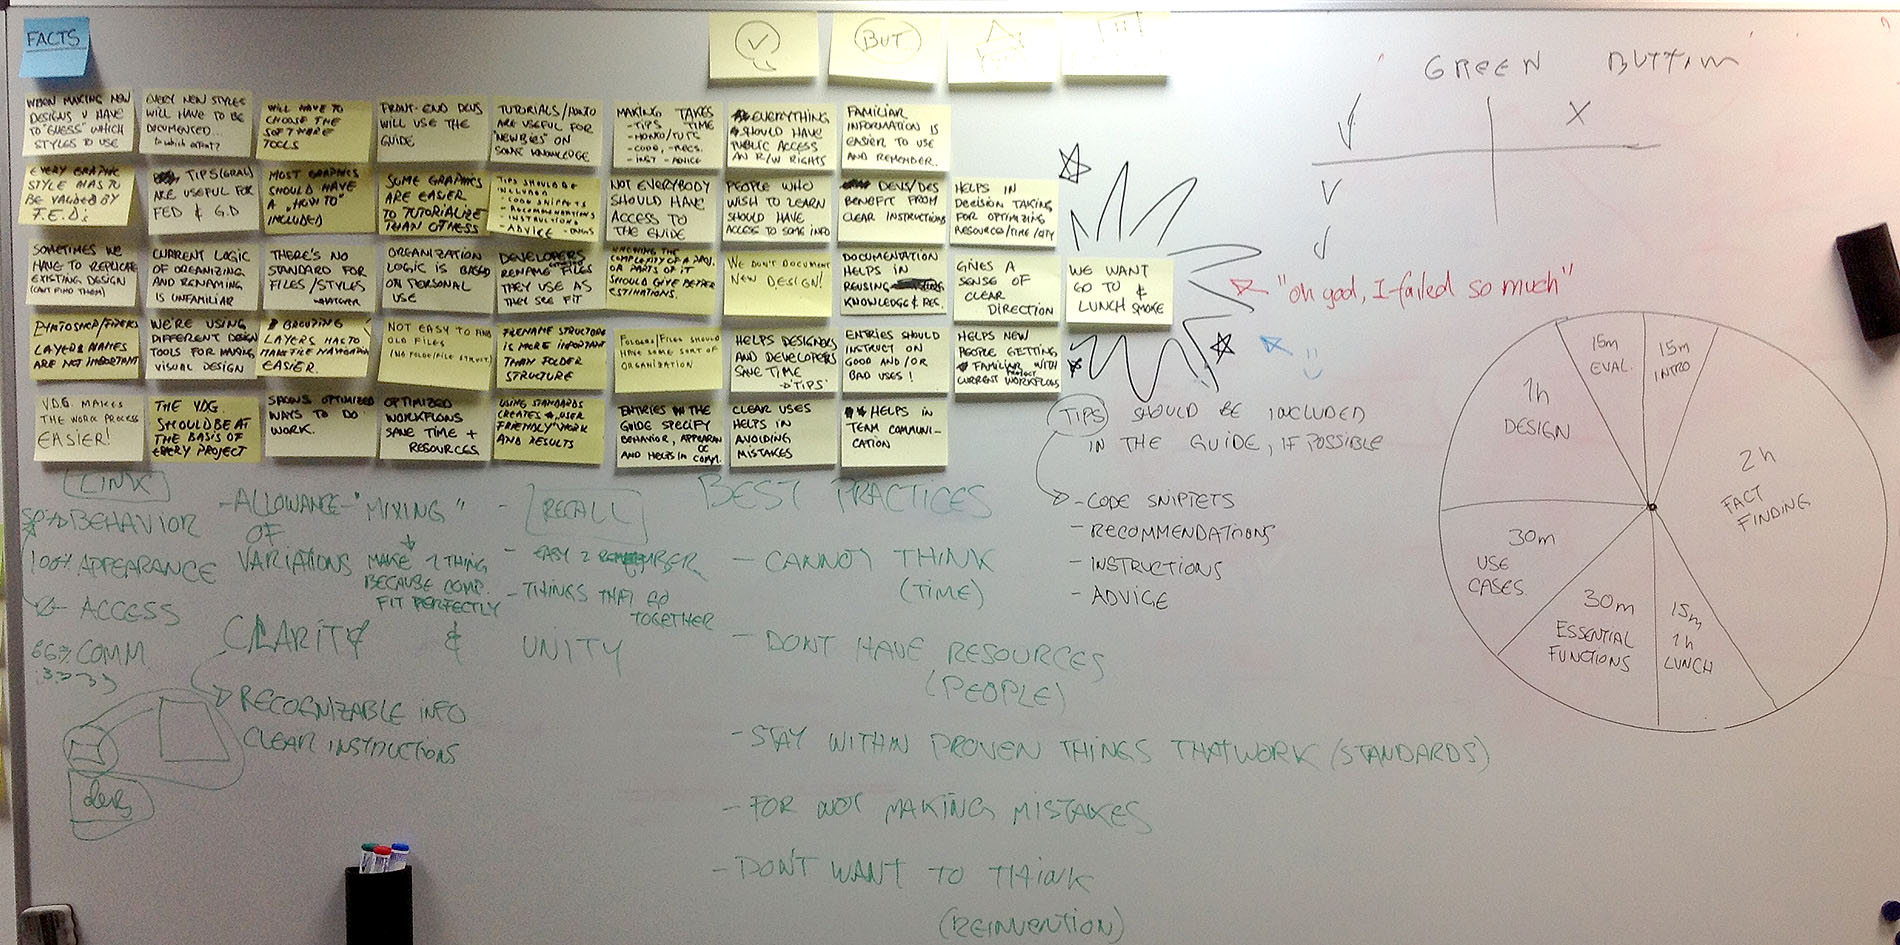 FACTS
BUT
GREEN BUTTON
WHEN MAKING NEW
DESIGNS U HAVE
TO "GUESS" WHICH
STYLES TO USE
EVERY NEW STYLES
WILL HAVE TO BE
DOCUMENTED...
to which extent?
WILL HAVE TO
CHOOSE THE
SOFTWARE
TOOLS
FRONT-END DEVS
WILL USE THE
GUIDE
TUTORIALS/HOWTO
ARE USEFUL FOR
"NEWBIES" ON
SOME KNOWLEDGE
MAKING TAKES
-TIPS TIME
-HOWTO/TUTS
-CODE, -RECS.
-INST -ADVICE
EVERYTHING
SHOULD HAVE
PUBLIC ACCESS
AN R/W RIGHTS
FAMILIAR
INFORMATION IS
EASIER TO USE
AND REMEMBER.
EVERY GRAPHIC
STYLE HAS TO
BE VALIDED BY
F.E.D.
TIPS (GRAL)
ARE USEFUL FOR
FED & G.D
MOST GRAPHICS
SHOULD HAVE
A "HOW TO"
INCLUDED
SOME GRAPHICS
ARE EASIER
TO TUTORIALIZE
THAN OTHESS
TIPS SHOULD BE
INCLUDED
- CODE SNIPPETS
- RECOMMENDATIONS
- INSTRUCTIONS
- ADVICE
NOT EVERYBODY
SHOULD HAVE
ACCESS TO
THE GUIDE
PEOPLE WHO
WISH TO LEARN
SHOULD HAVE
ACCESS TO SOME INFO
DEVS/DES
BENEFIT FROM
CLEAR INSTRUCTIONS
HELPS IN
DECISION TAKING
FOR OPTIMIZING
RESOURCE/TIME/QTY
SOMETIMES WE
HAVE TO REPLICATE
EXISTING DESIGN
(CAN'T FIND THEM)
CURRENT LOGIC
OF ORGANIZING
AND RENAMING
IS UNFAMILIAR
THERE'S NO
STANDARD FOR
FILES/STYLES
WHATEVER
ORGANIZATION
LOGIC IS BASED
ON PERSONAL
USE
DEVELOPERS
RENAME FILES
THEY USE AS
THEY SEE FIT
KNOWING THE
COMPLEXITY OF A PROJ.
OR PARTS OF IT
SHOULD GIVE BETTER
ESTIMATIONS.
WE DON'T DOCUMENT
NEW DESIGN!
DOCUMENTATION
HELPS IN
REUSING
KNOWLEDGE & RES.
GIVES A
SENSE OF
CLEAR
DIRECTION
WE WANT
GO TO &
LUNCH SMOKE
"oh god, I failed so much"
LAYERS NAMES
ARE NOT IMPORTANT
WE'RE USING
DIFFERENT DESIGN
TOOLS FOR MAKING
VISUAL DESIGN
GROUPING
LAYERS HAS TO
MAKE FILE NAVIGATION
EASIER.
NOT EASY TO FIND
OLD FILES
(NO FOLDER/FILE STRUCT)
FILENAME STRUCTURE
IS MORE IMPORTANT
THAN FOLDER
STRUCTURE
FOLDERS/FILES SHOULD
HAVE SOME SORT OF
ORGANIZATION
HELPS DESIGNERS
AND DEVELOPERS
SAVE TIME
"TIPS"
ENTRIES SHOULD
INSTRUCT ON
GOOD AND/OR
BAD USES!
HELPS NEW
PEOPLE GETTING
FAMILIAR WITH
PROJECT
CURRENT WORKFLOWS
V.D.G. MAKES
THE WORK PROCESS
EASIER!
THE V.D.G.
SHOULD BE AT
THE BASIS OF
EVERY PROJECT
SHOWS OPTIMIZED
WAYS TO DO
WORK.
OPTIMIZED
WORKFLOWS
SAVE TIME +
RESOURCES
USING STANDARDS
CREATES USER
FRIENDLY WORK
AND RESULTS
ENTRIES IN THE
GUIDE SPECIFY
BEHAVIOR, APPEARANCE
AND HELPS IN COMM.
CLEAR USES
HELPS IN
AVOIDING
MISTAKES
HELPS IN
TEAM COMMUNI-
CATION
TIPS SHOULD BE INCLUDED
IN THE GUIDE, IF POSSIBLE
-CODE SNIPTETS
-RECOMMENDATIONS
-INSTRUCTIONS
-ADVICE
15m
EVAL.
15m
INTRO
1h
DESIGN
2h
FACT
FINDING
30m
USE
CASES
30m
ESSENTIAL
FUNCTIONS
15m
1h
LUNCH
LINK
BEHAVIOR
100% APPEARANCE
ACCESS
66% COMM
-ALLOWANCE
OF
VARIATIONS
"MIXING"
MAKE 1 THING
BECAUSE COMP.
FIT PERFECTLY
- RECALL
- EASY 2 REMEMBER
- THINGS THAT GO
TOGETHER
CLARITY & UNITY
RECOGNIZABLE INFO
CLEAR INSTRUCTIONS
devs
BEST PRACTICES
- CANNOT THINK
(TIME)
- DONT HAVE RESOURCES
(PEOPLE)
-STAY WITHIN PROVEN THINGS THAT WORK (STANDARDS)
-FOR NOT MAKING MISTAKES
-DON'T WANT TO THINK
(REINVENTION)